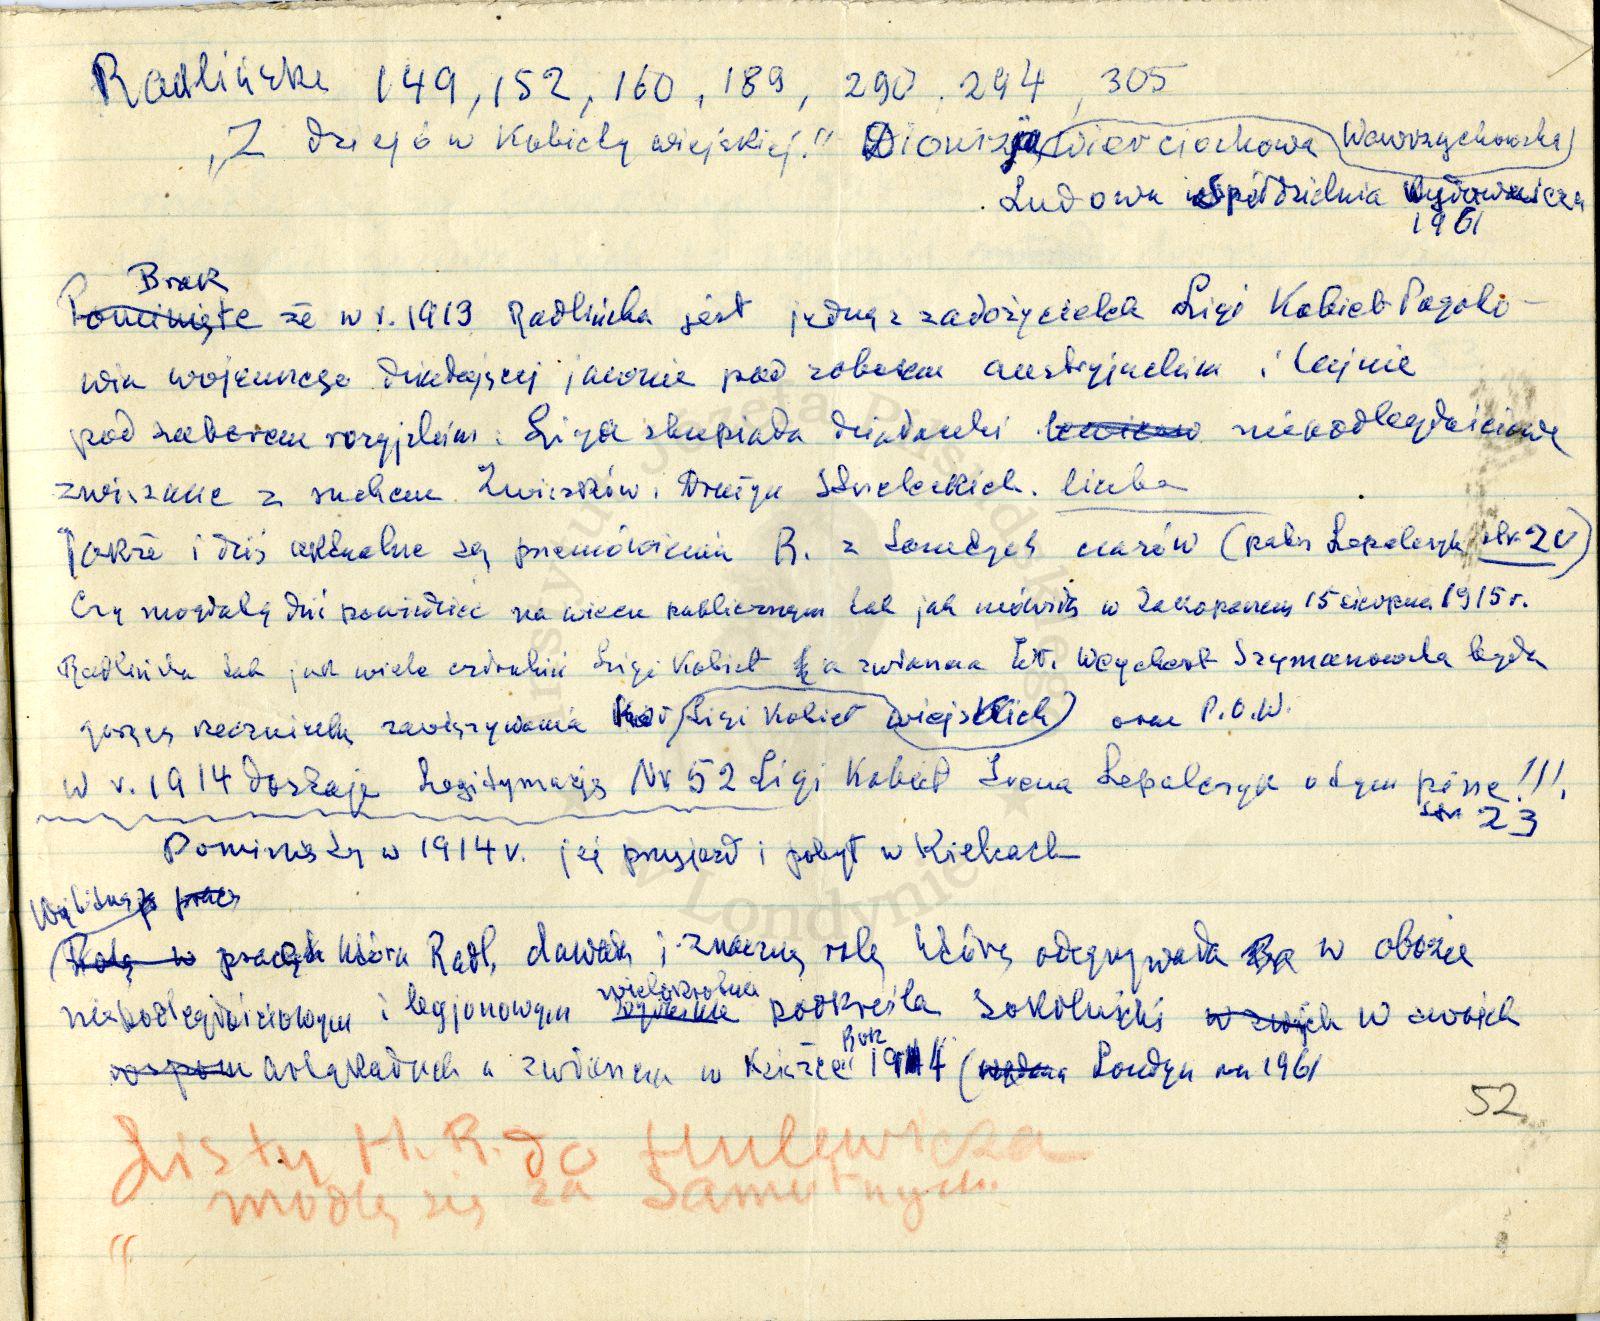 Radlińska 149, 152, 160, 189, 290, 294, 305
„Z dziejów Kobiety wiejskiej." Dionizja Wierciochowa Wawrzychowska
Ludowa Spółdzielnia Wydawnicza
1961
Brak
Pominięte że w r. 1913 Radlińska jest jedną z założycielek Ligi Kobiet Pogoto-
wia wojennego działającej jawnie pod zaborem austryjackim i tajnie
pod zaborem rosyjskim. Liga skupiała działaczki niepodległościowe
związane z ruchem Związków i Drużyn Strzeleckich. liczba
Jakże i dziś aktualne są przemówienia R. z tamtych czasów (patrz Lepalczyk str. 20)
Czy mogłaby dziś powiedzieć na wiecu publicznym tak jak mówiła w Zakopanem 15 sierpnia 1915 r.
Radlińska tak jak wiele członkiń Ligi Kobiet a zwłaszcza Wł. Weychert Szymanowska była
gorącą rzeczniczką zawiązywania Kół Ligi Kobiet wiejskich oraz P.O.W.
w r. 1914 dostaje Legitymację Nr 52 Ligi Kobiet Irena Lepalczyk o tym pisze!!!
str 23
Pominięty w 1914 r. jej przyjazd i pobyt w Kielcach
Wybitną pracę
Rolę w pracach która Radl. dawała i znaczną rolę którą odegrywała w obozie
wielokrotnie
niepodległościowym i legjonowym podkreśla Sokolnicki w swoich w swoich
wspom artykułach a zwłaszcza w Książce
Rok
1914 ( Londyn 1961
52
Listy H.R. do Hulewicza
modlę się za Samotnych.
"